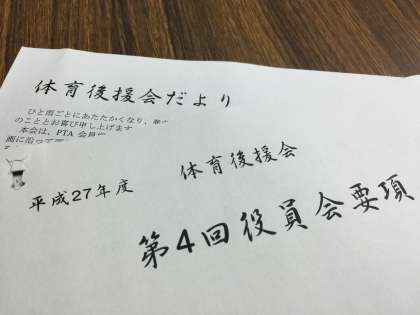 体育後援会だより
ひと雨ごとにあたたかくなり、
のこととお喜び申し上げます
本会は、PTA 会員
画に沿って
平成27年度
体育後援会
第4回役員会要項